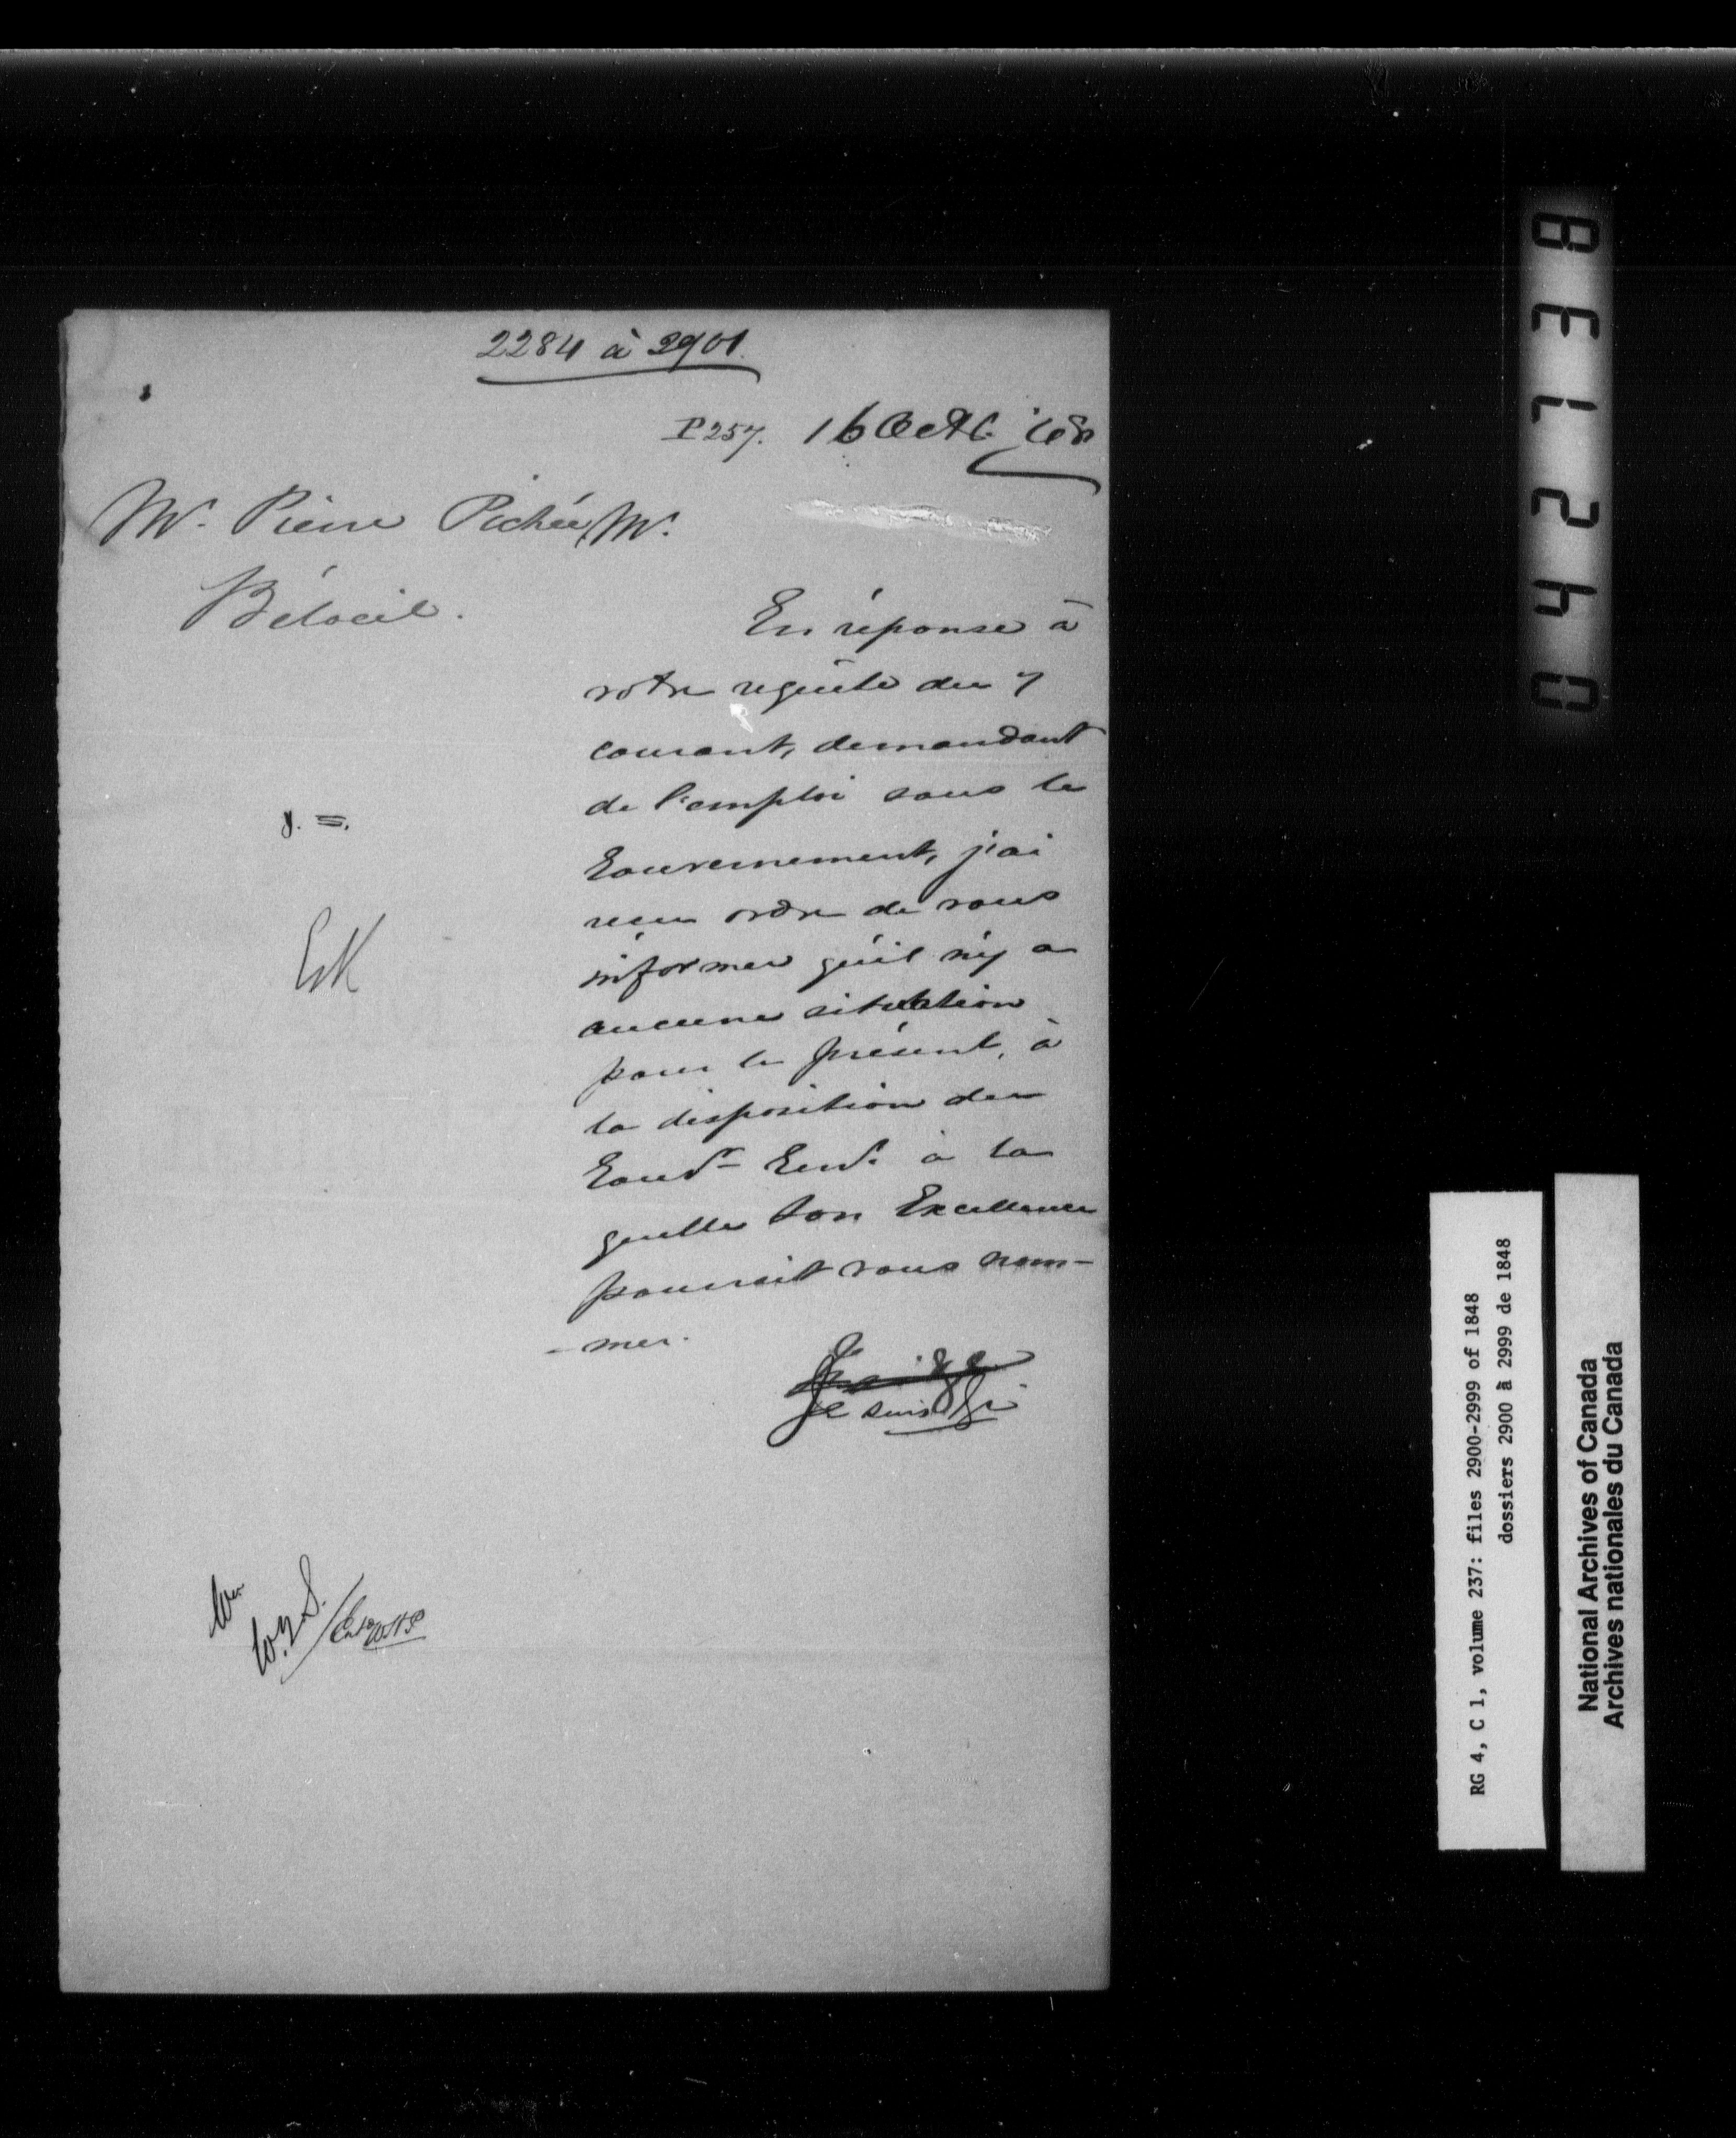 2284 à 2901.
P 257. 16 Octb. '48
Mr. Pierre Pichée, Mr.
Bélœil.
En réponse à
votre requête du 7
courant, demandant
de l'emploi sous le
Gouvernement, j'ai
reçu ordre de vous
informer qu'il n'y a
aucune situation
pour le présent, à
la disposition du
Gouvr. Genl. à la
quelle Son Excellence
pourrait vous nom-
-mer.
Je suis &c
RG 4, C 1, volume 237: files 2900-2999 of 1848
dossiers 2900 à 2999 de 1848
National Archives of Canada
Archives nationales du Canada
042178